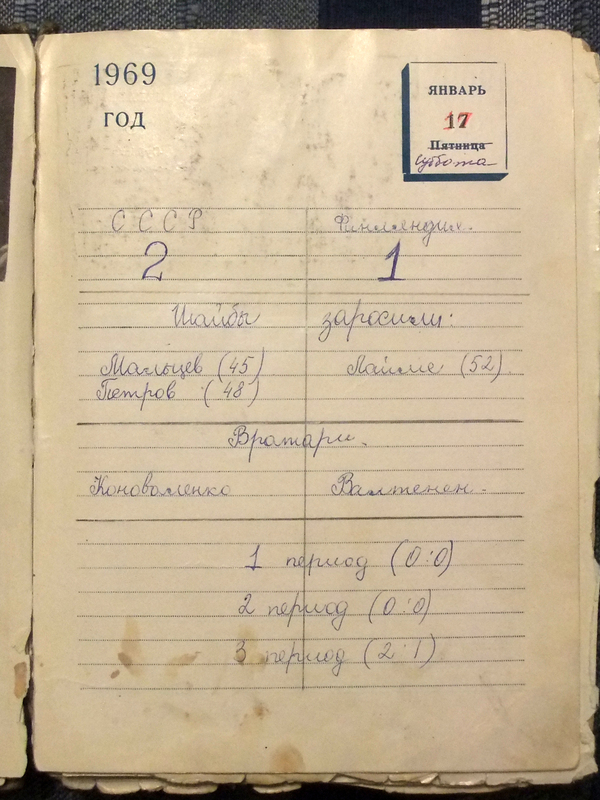 1969
ГОД
ЯНВАРЬ
17
Пятница
Суббота
СССР Финляндия.
2 1
Шайбы заросили:
Мальцев (45) Лайне (52)
Петров (48)
Вратари.
Коноваленко Валтенен.
1 период (0:0)
2 период (0:0)
3 период (2:1)